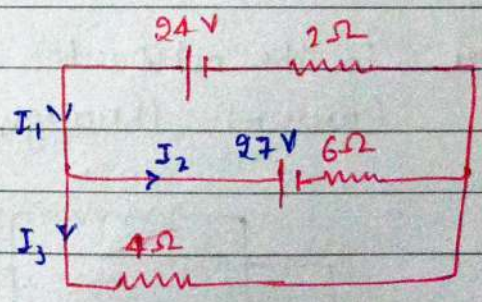 24 V 2Ω
I₁
I₂ 27 V 6Ω
I₃ 4Ω